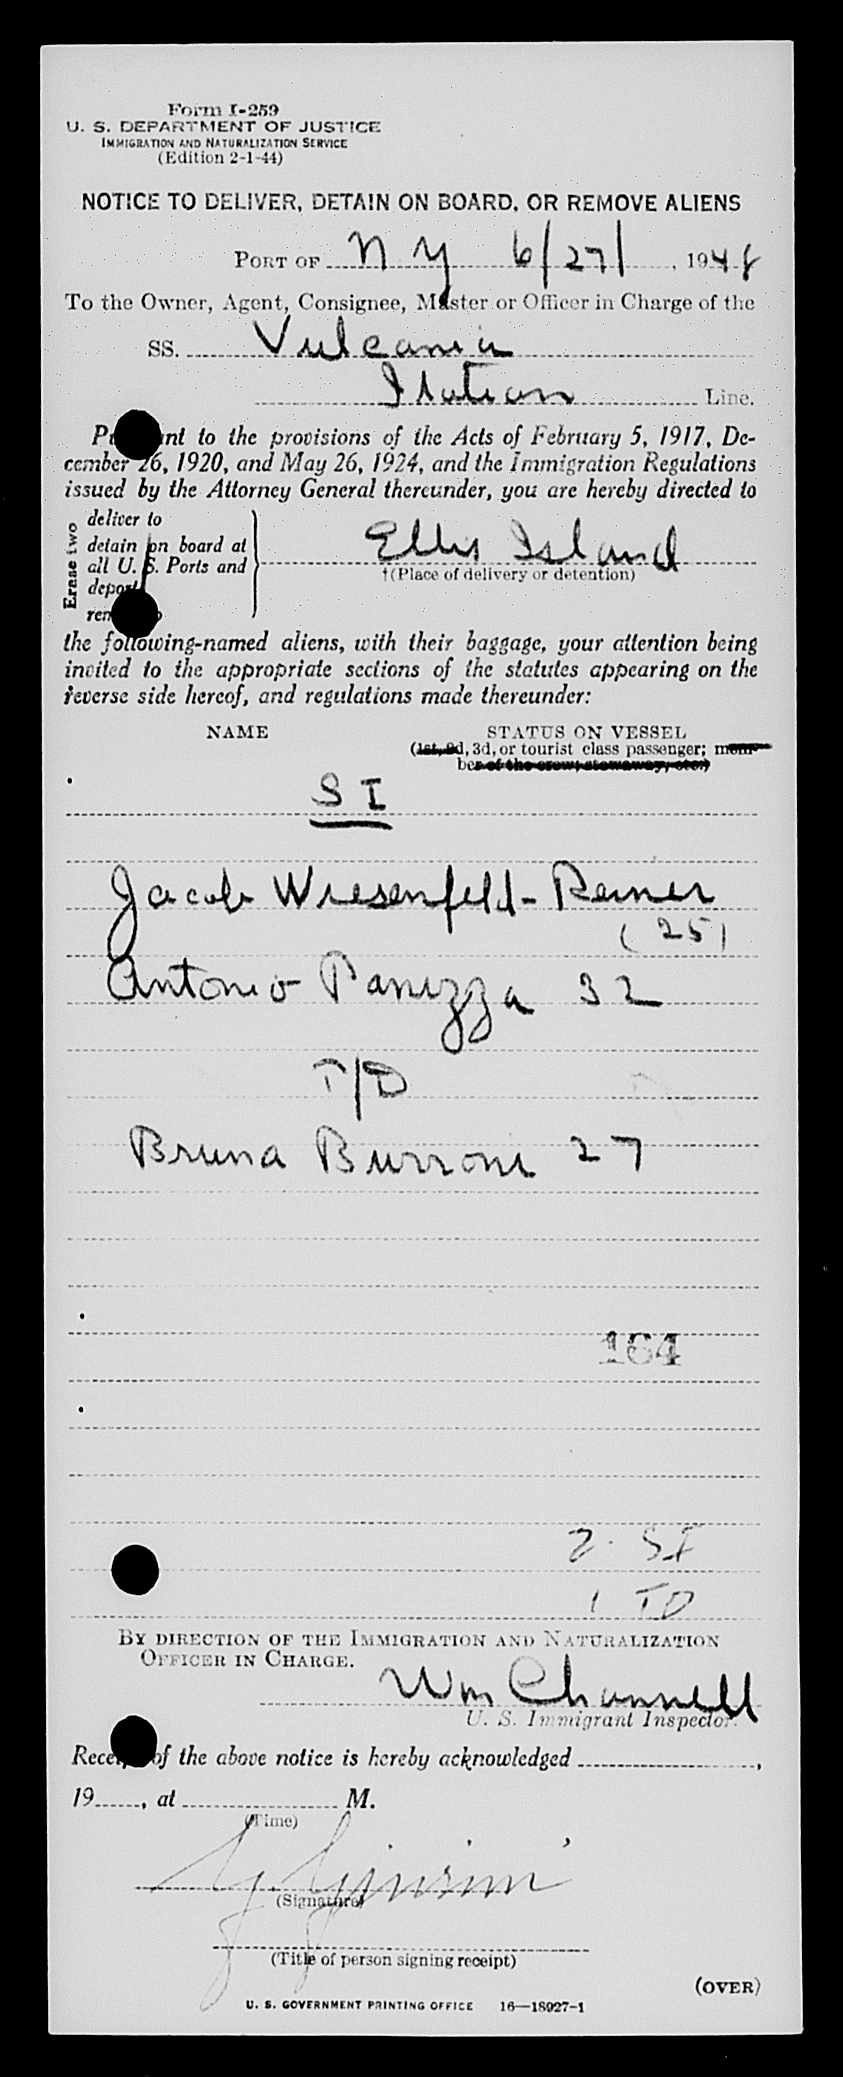 Form I-259
U. S. DEPARTMENT OF JUSTICE
IMMIGRATION AND NATURALIZATION SERVICE
(Edition 2-1-44)
NOTICE TO DELIVER, DETAIN ON BOARD, OR REMOVE ALIENS
PORT OF N Y 6/27/, 1948
To the Owner, Agent, Consignee, Master or Officer in Charge of the
SS. Vulcania
Italian Line.
nt to the provisions of the Acts of February 5, 1917, De-
cember 26, 1920, and May 26, 1924, and the Immigration Regulations
issued by the Attorney General thereunder, you are hereby directed to
Erase two
deliver to
detain on board at
all U. S. Ports and
deport
Ellis Island
†(Place of delivery or detention)
the following-named aliens, with their baggage, your attention being
invited to the appropriate sections of the statutes appearing on the
reverse side hereof, and regulations made thereunder:
NAME STATUS ON VESSEL
(1st, 2d, 3d, or tourist class passenger; mem-
ber of the crew; stowaway, etc.)
S I
Jacob Wiesenfeld-Reiner
(25)
Antonio Panizza 32
T/D
Bruna Burroni 27
164
2 SI
1 TD
BY DIRECTION OF THE IMMIGRATION AND NATURALIZATION
OFFICER IN CHARGE.
Wm Channell
U. S. Immigrant Inspector.
Receipt of the above notice is hereby acknowledged ,
19 , at M.
(Time)
(Signature)
(Title of person signing receipt)
(OVER)
U. S. GOVERNMENT PRINTING OFFICE 16—18927-1